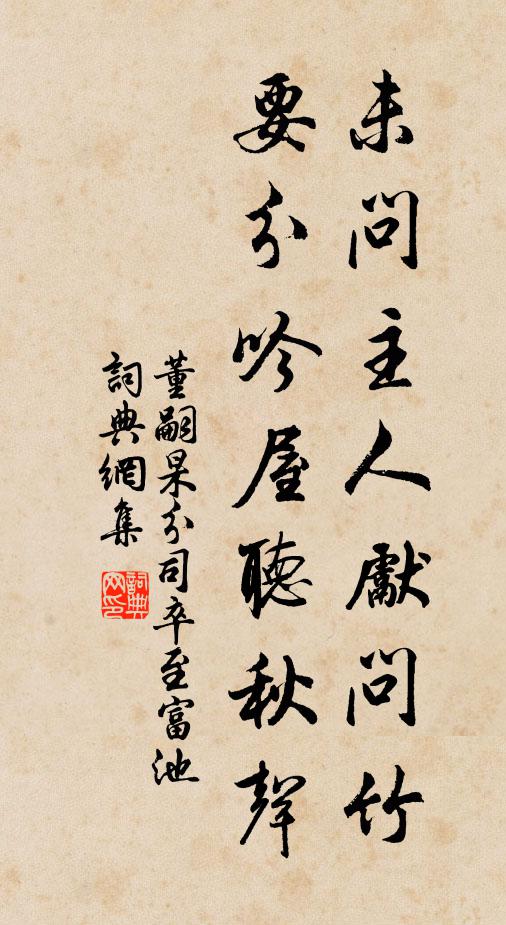 未問主人獻問竹
要分吟屋聽秋聲
董嗣杲分司卒至富池
詞典網集
詞典网印